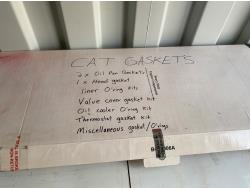 CAT GASKETS
2 x Oil Pan Gaskets
1 x Head gasket
liner O'ring Kits
Valve cover gasket Kit
Oil cooler O'ring kit
Thermostat gasket Kit
Miscellaneous gasket/O'rings